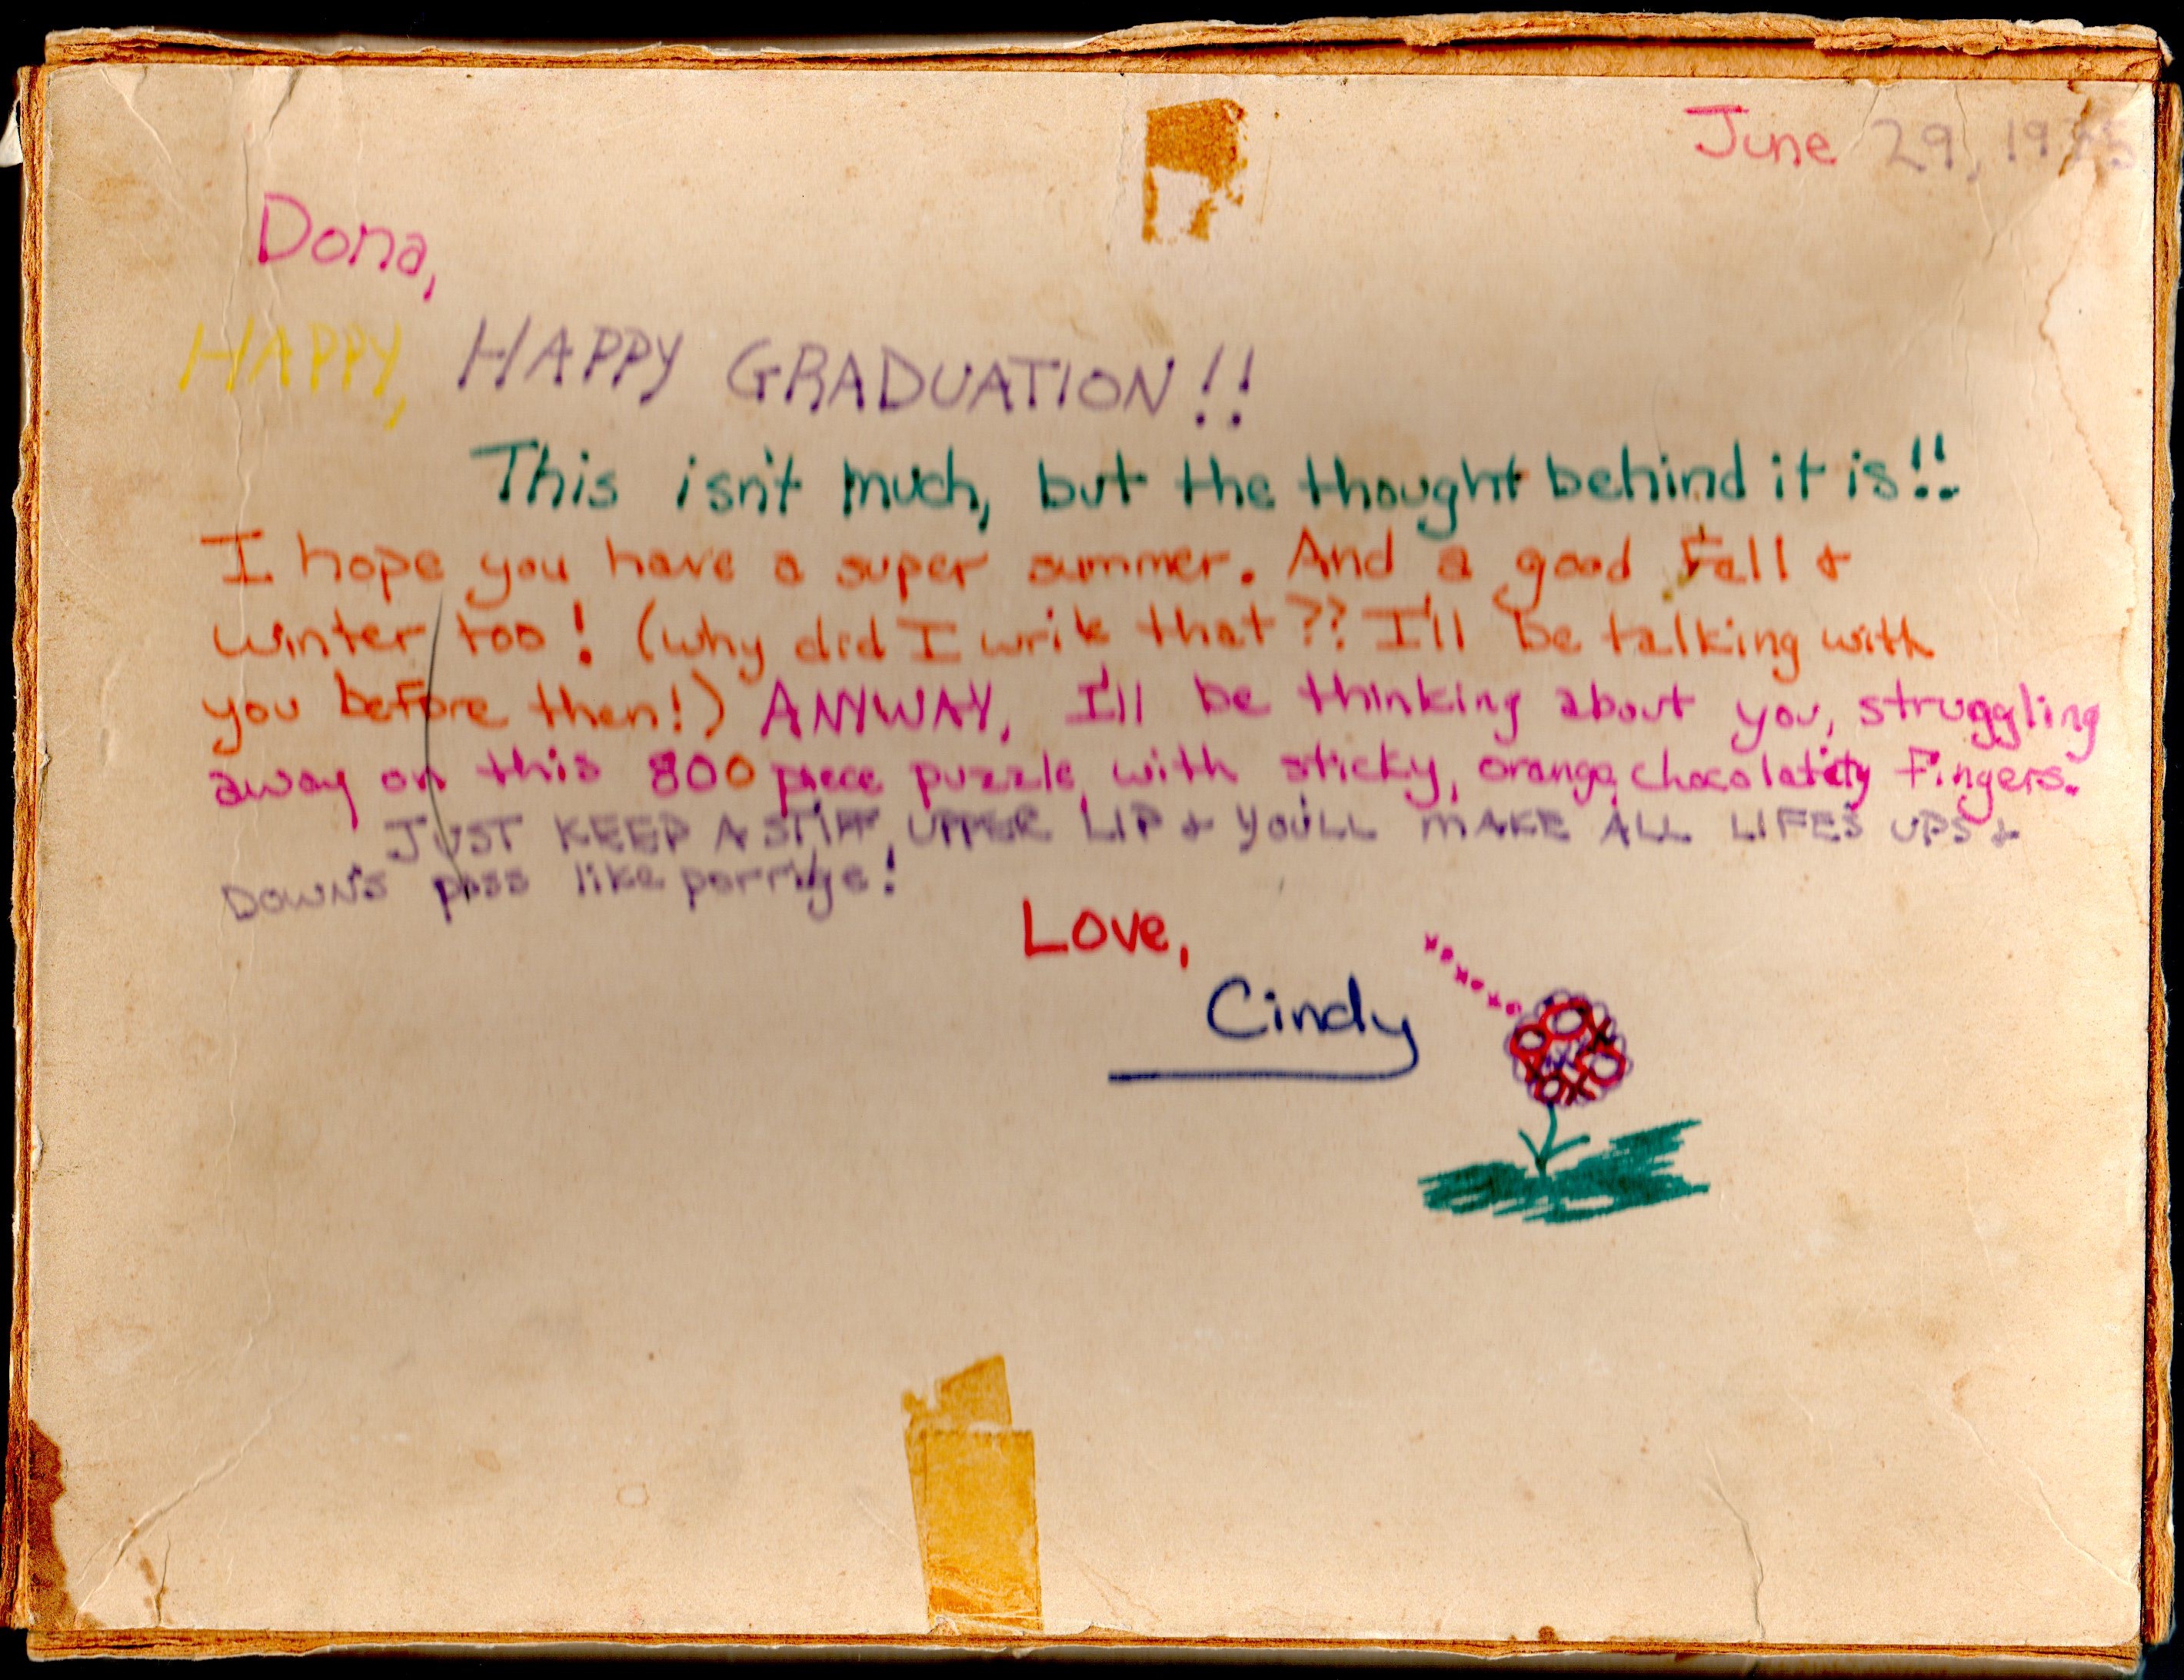 June 29, 1975
Dona,
HAPPY, HAPPY GRADUATION!!
This isn't much, but the thought behind it is!!
I hope you have a super summer. And a good Fall &
winter too! (why did I write that?? I'll be talking with
you before then!) ANYWAY, I'll be thinking about you, struggling
away on this 800 piece puzzle, with sticky, orange, chocolatety Fingers.
JUST KEEP A STIFF, UPPER LIP & YOU'LL MAKE ALL LIFE'S UPS &
DOWN'S pass like porridge!
Love,
Cindy
xoxoxo